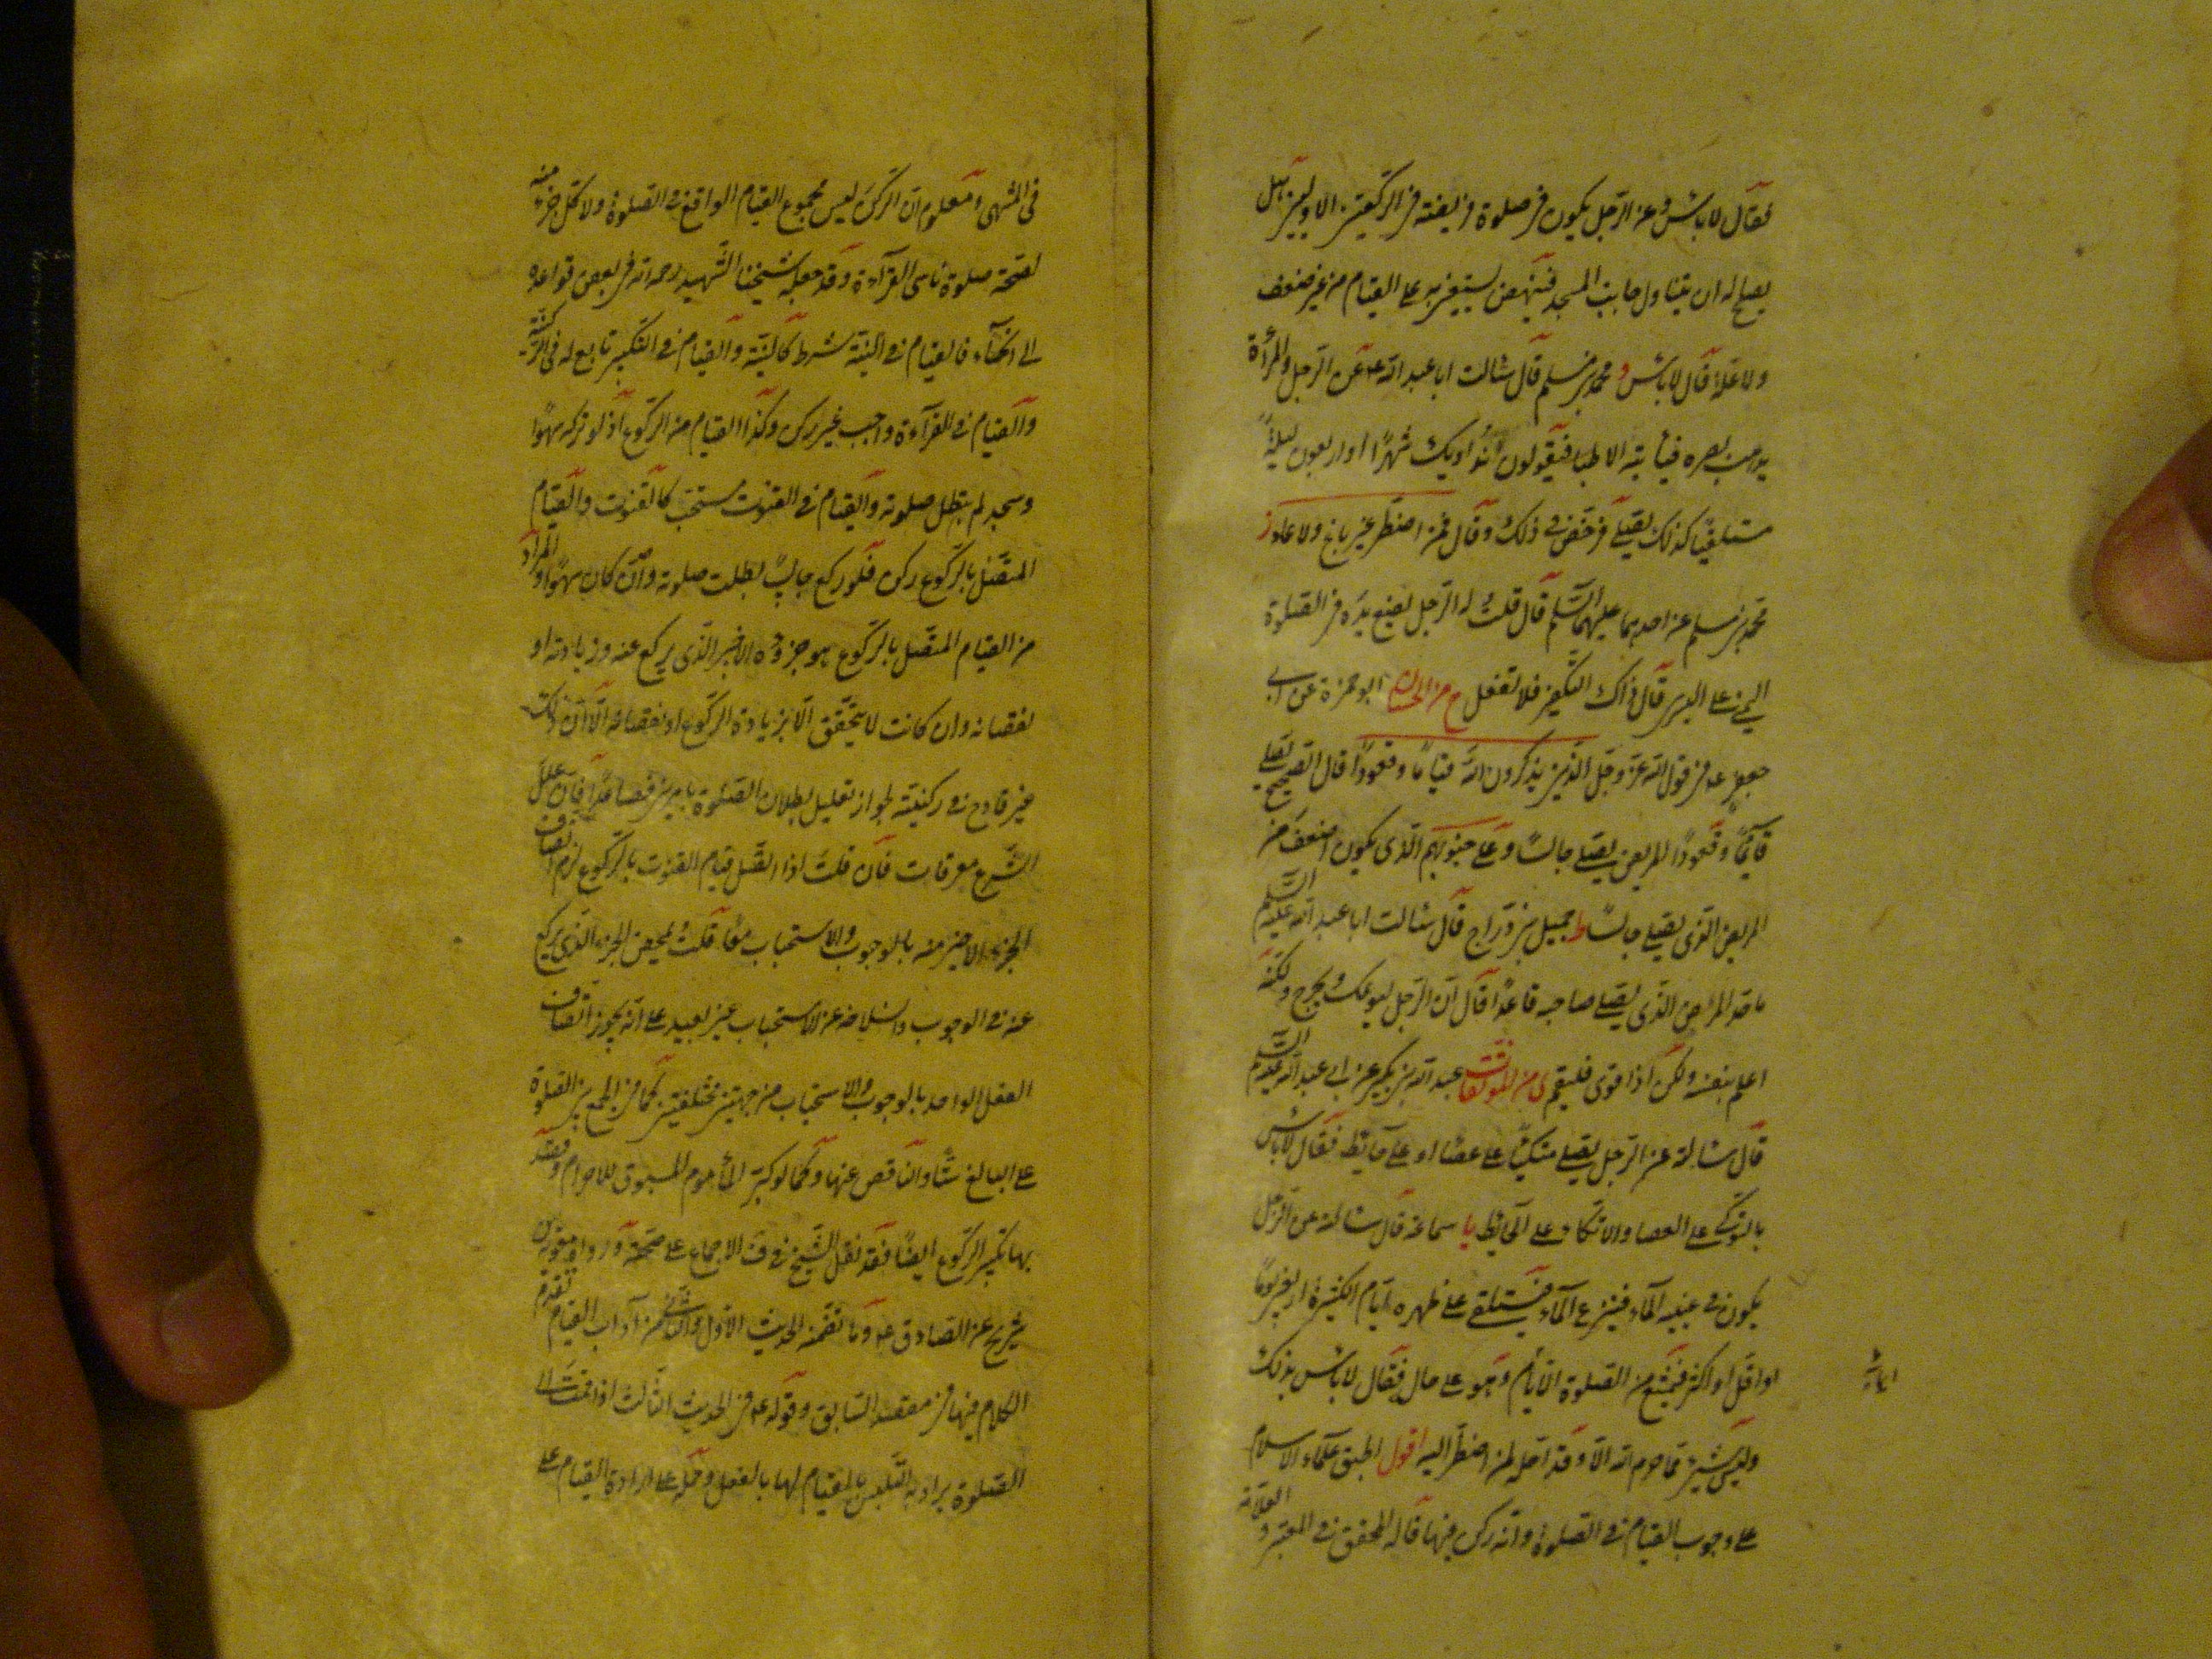 فقال لا باس وعن الرجل يكون في صلوة فريضة فيقوم في الركعتين الاوليين هل
يصلح له ان يتناول جانب المسجد فينهض يستعين به على القيام من غير ضعف
ولا علة قال لا باس و محمد بن مسلم قال سالت ابا عبد الله ع عن الرجل والمرأة
يذهب بصره فيأتيه الاطباء فيقولون نداويك شهرا او اربعين ليلة
مستلقيا كذلك يصلي فرخص في ذلك وقال فمن اضطر غير باغ ولا عاد ز
محمد بن مسلم عن احدهما عليهما السلم قال قلت له الرجل يضع يده في الصلوة
اليمنى على اليسرى قال ذلك التكفير فلا تفعل ح من الحسان ابو حمزة عن ابي
جعفر ع في قول الله عز وجل الذين يذكرون الله قياما وقعودا قال الصحيح يصلي
قائما وقعودا المريض يصلي جالسا وعلى جنوبهم الذي يكون اضعف من
المريض الذي يصلي جالسا ط جميل بن دراج قال سالت ابا عبد الله عليه السلم
ما حد المرض الذي يصلي صاحبه قاعدا قال ان الرجل ليوعك ويحرج ولكنه
اعلم بنفسه ولكن اذا قوي فليقم ى من الموثقات عبد الله بن بكير عن ابي عبد الله عليه السلم
قال سالته عن الرجل يصلي متكئا على عصا او على حايط فقال لا باس
بالتوكي على العصا والاتكاء على الحايط يا سماعة قال سالته عن الرجل
يكون في عينيه الماء فينتزع الماء فيستلقي على ظهره الايام الكثيرة اربعين يوما
او اقل او اكثر فيمتنع من الصلوة الايام وهو على حال فقال لا باس بذلك
وليس شيء مما حرم الله الا وقد احله لمن اضطر اليه اقول اطبق علماء الاسلام
على وجوب القيام في الصلوة وانه ركن فيها قاله المحقق في المعتبر والعلامة
في المنتهى ومعلوم ان الركن ليس مجموع القيام الواقع في الصلوة ولا كل جزء منه
لصحة صلوة ناسي القرآءة وقد جعله شيخنا الشهيد رحمه الله في بعض قواعده
على انحآء فالقيام في النية شرط كالنية والقيام في التكبير تابع له في الركنية
والقيام في القرآءة واجب غير ركن وكذا القيام من الركوع اذ لو تركه سهوا
وسجد لم تبطل صلوته والقيام في القنوت مستحب كالقنوت والقيام
المتصل بالركوع ركن فلو ركع جالسا بطلت صلوته وان كان سهوا والمراد
من القيام المتصل بالركوع هو جزؤه الاخير الذي يركع عنه وزيادته او
نقصانه وان كانت لا يتحقق الا بزيادة الركوع او نقصانه الا ان ذلك
غير قادح في ركنيته لجواز تعليل بطلان الصلوة بامرين فصاعدا فان علل
الشرع معرفات فان قلت اذا اتصل قيام القنوت بالركوع لزم اتصاف
الجزء الاخير منه بالوجوب والاستحباب معا قلت تمحض الجزء الذي يركع
عنه في الوجوب وانسلاخه عن الاستحباب غير بعيد على انه يجوز اتصاف
الفعل الواحد بالوجوب والاستحباب من جهتين مختلفتين كما في الجمع بين الصلوة
على البالغ ستا والناقص عنها وكما لو كبر المأموم المسبوق للاحرام وقصد
بها تكبير الركوع ايضا فقد نقل الشيخ في ف الاجماع على صحته ورواه معوية بن
شريح عن الصادق ع وما تضمنه الحديث الاول والثاني من آداب القيام تقدم
الكلام فيها في مقصد السابق وقوله ع في الحديث الثالث اذا قمت الى
الصلوة يراد به التلبس بالقيام لها بالفعل وحمله على ارادة القيام على